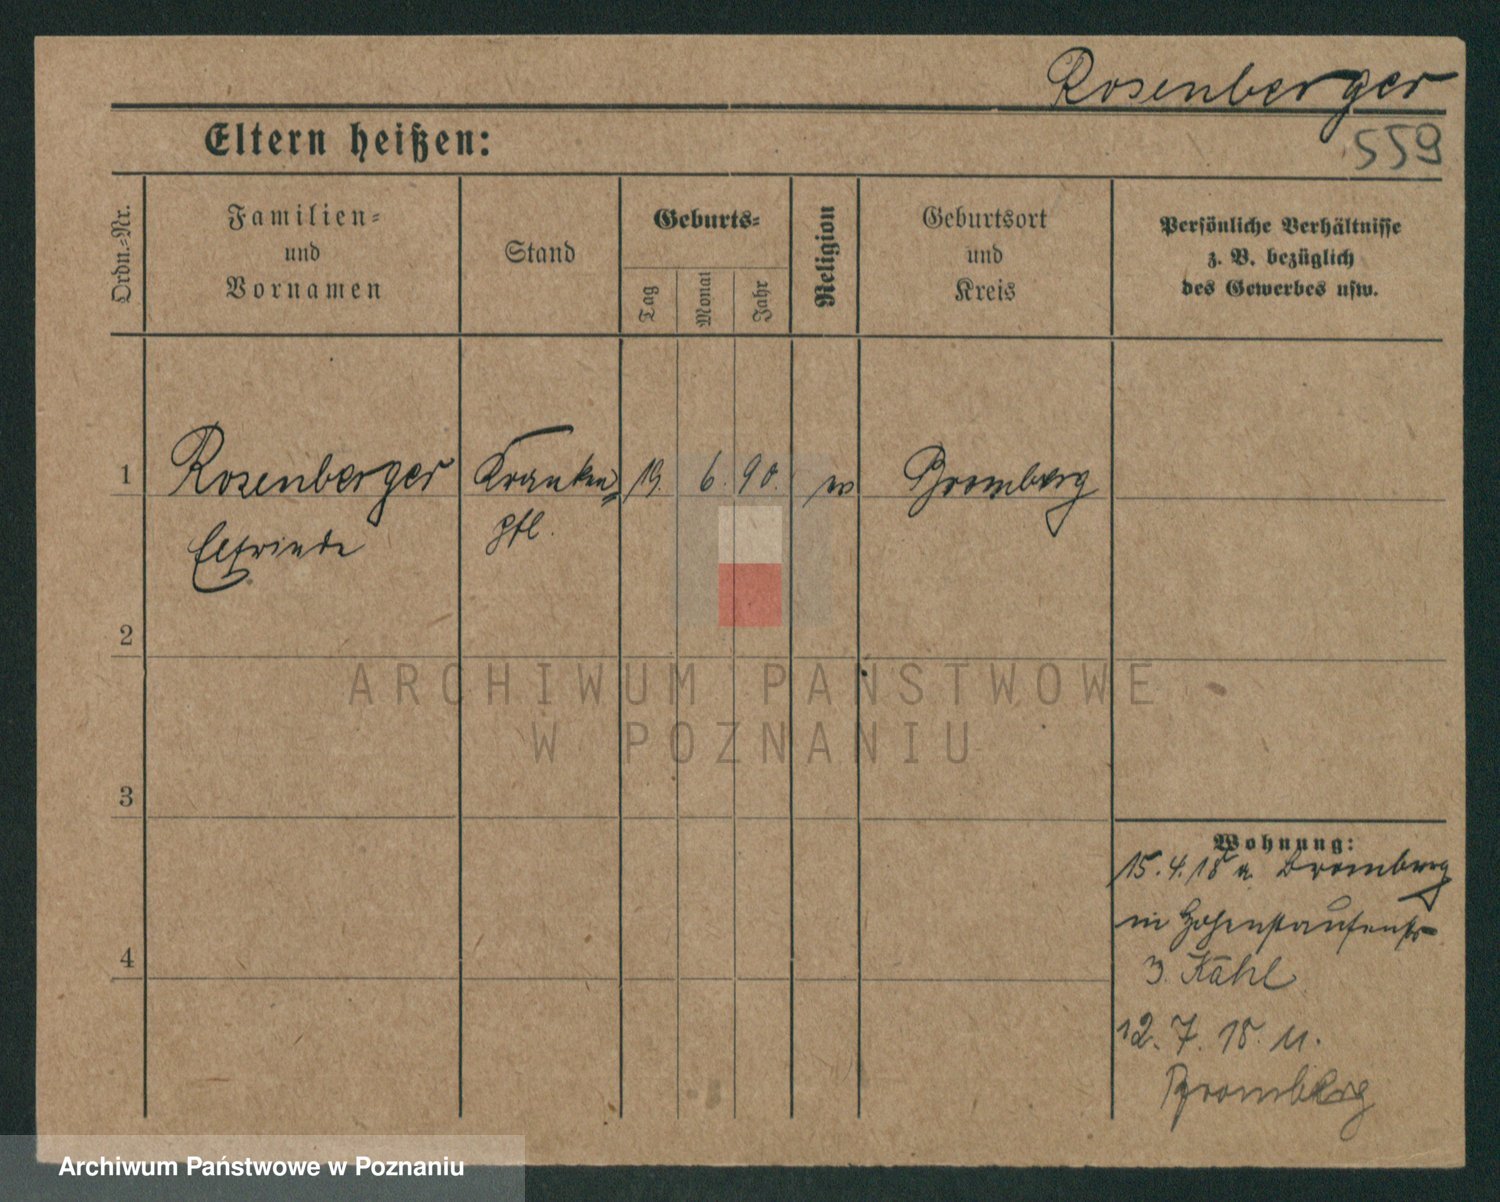 Rosenberger
559
Eltern heißen:
Ordn.-Nr.
Familien-
und
Vornamen
Stand
Geburts-
Tag
Monat
Jahr
Religion
Geburtsort
und
Kreis
Persönliche Verhältnisse
z. B. bezüglich
des Gewerbes usw.
1 Rosenberger Kranken= 19. 6. 90. Bromberg
Elfriede pfl.
2
ARCHIWUM PAŃSTWOWE
W POZNANIU
3
Wohnung:
15.4.18 a. Bromberg
in Hohenstaufenstr
3. Kahl
4
12. 7. 18. u.
Bromberg
Archiwum Państwowe w Poznaniu